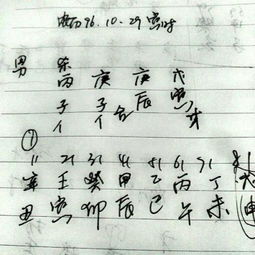 历96.10.29 寅时
男 丙 庚 庚 戊
子 子 合 辰 寅
①
11 21 31 41 51 61 71 81
辛 壬 癸 甲 乙 丙 丁 戊
丑 寅 卯 辰 巳 午 未 申